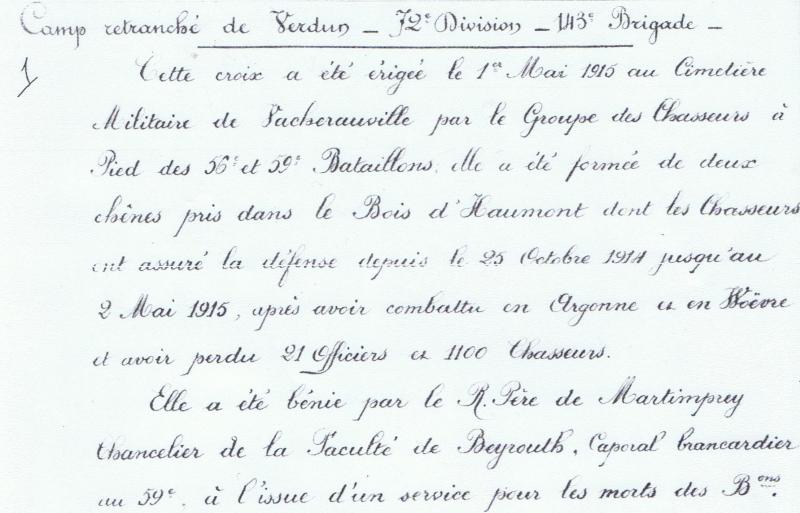 Camp retranché de Verdun – 72e Division – 143e Brigade –
1
Cette croix a été érigée le 1er Mai 1915 au Cimetière
Militaire de Vacherauville par le Groupe des Chasseurs à
Pied des 56e et 59e Bataillons. Elle a été formée de deux
chênes pris dans le Bois d'Haumont dont les Chasseurs
ont assuré la défense depuis le 25 Octobre 1914 jusqu'au
2 Mai 1915, après avoir combattu en Argonne et en Woëvre
et avoir perdu 21 Officiers et 1100 Chasseurs.
Elle a été bénie par le R. Père de Martimprey
Chancelier de la Faculté de Beyrouth, Caporal brancardier
au 59e, à l'issue d'un service pour les morts des Bons.